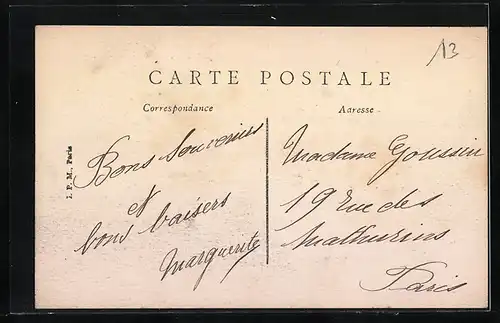 13
CARTE POSTALE
Correspondance
Adresse
I. P. M., Paris
Bons souvenirs
et
bons baisers
Marguerite
Madame Goussin
19 rue des
Mathurins
Paris